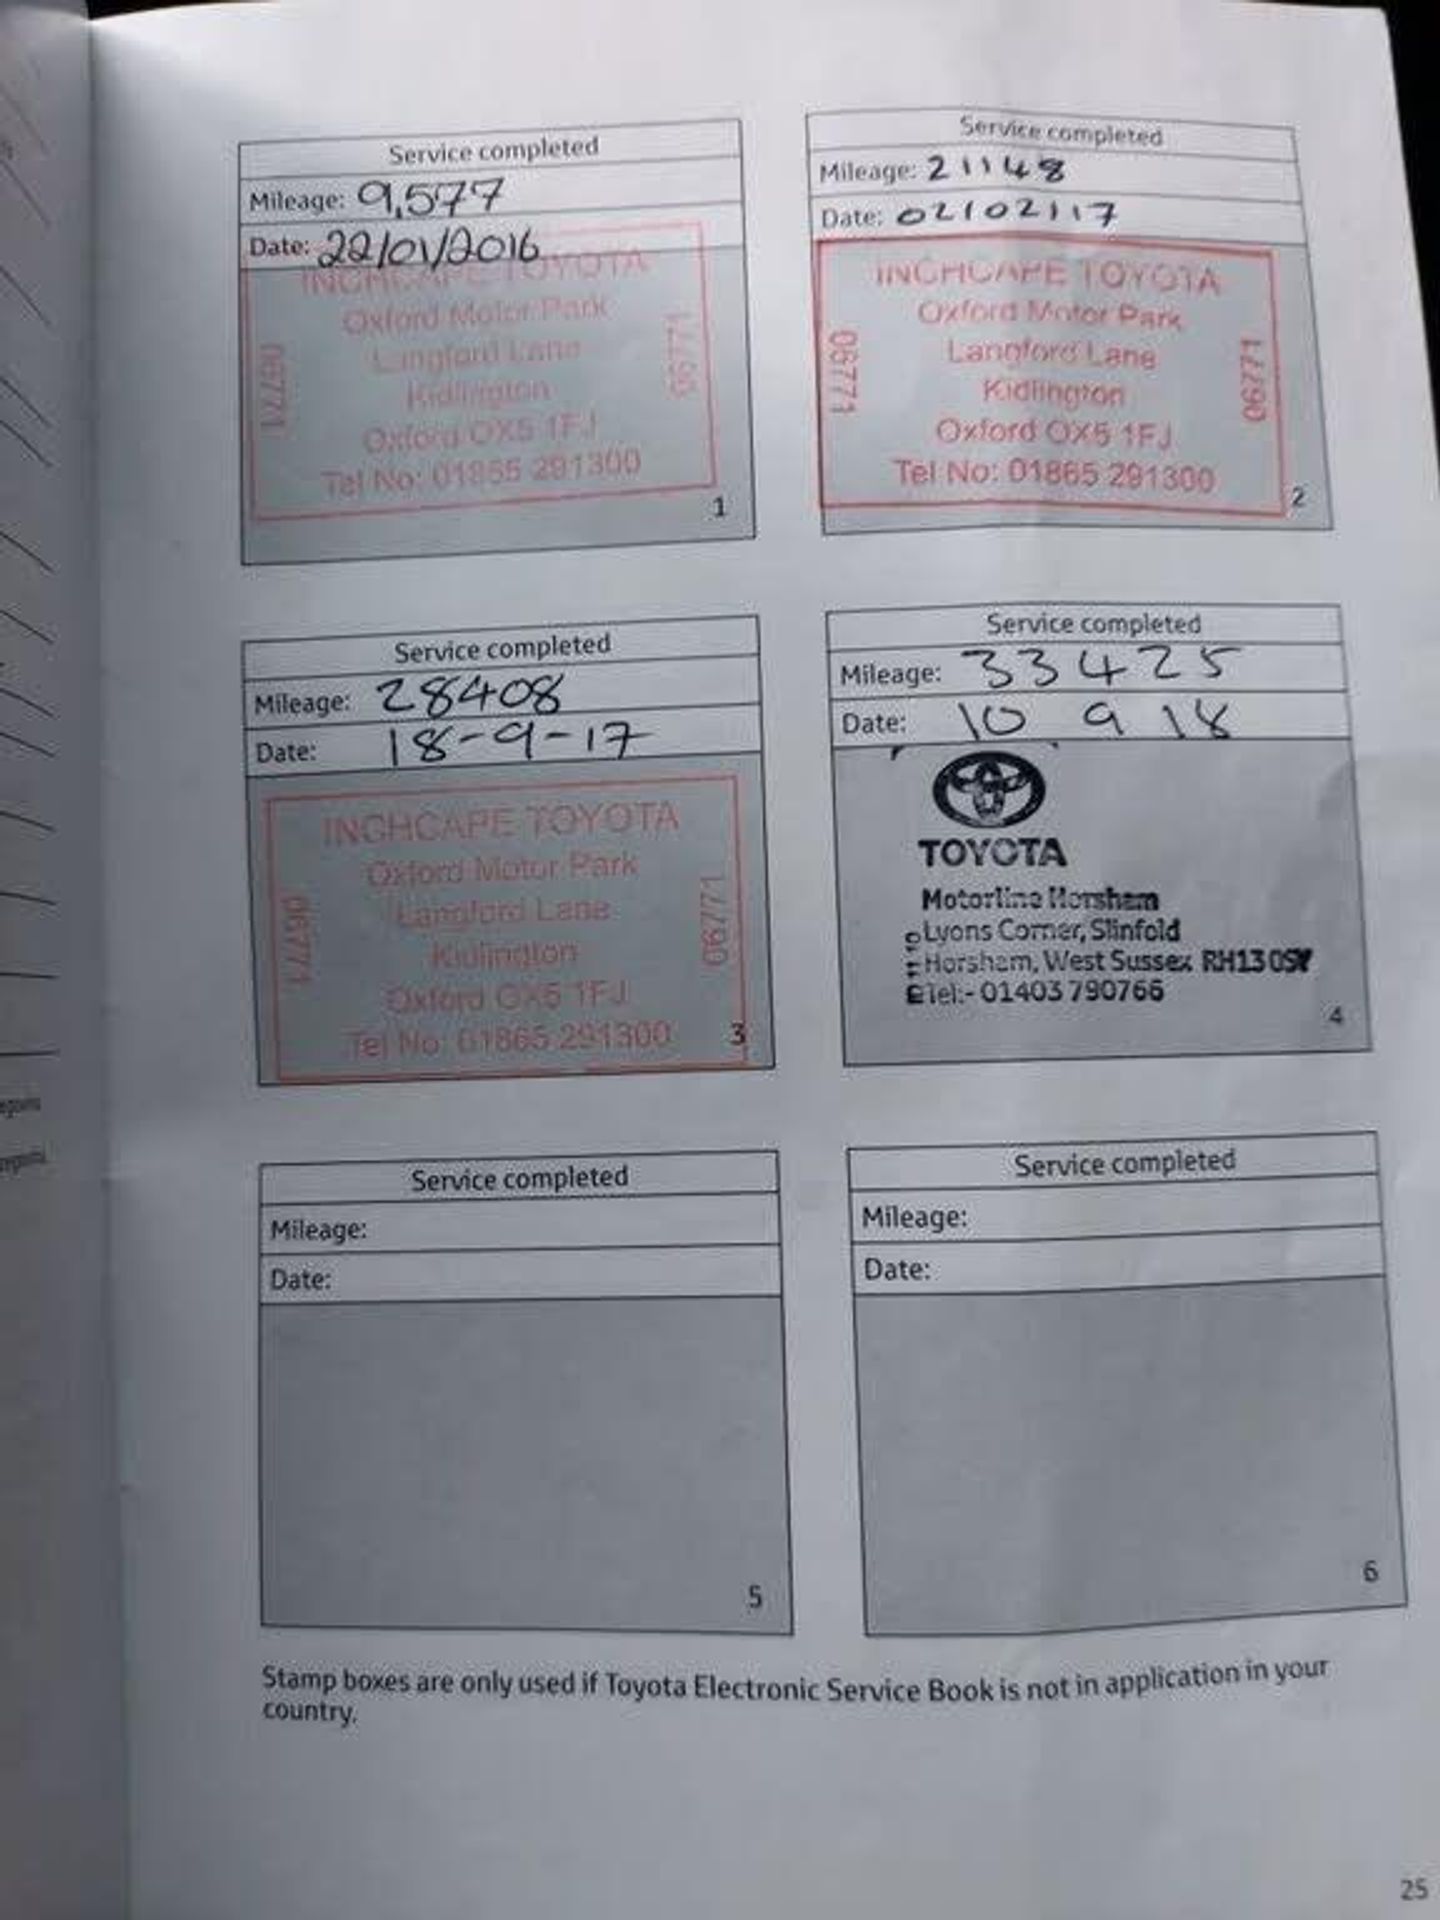 Service completed
Mileage: 9,577
Date: 22/01/2016
INCHCAPE TOYOTA
Oxford Motor Park
Langford Lane
Kidlington
Oxford OX5 1FJ
Tel No: 01865 291300
06771
06771
1
Service completed
Mileage: 21148
Date: 02/02/17
INCHCAPE TOYOTA
Oxford Motor Park
Langford Lane
Kidlington
Oxford OX5 1FJ
Tel No: 01865 291300
06771
06771
2
Service completed
Mileage: 28408
Date: 18-9-17
INCHCAPE TOYOTA
Oxford Motor Park
Langford Lane
Kidlington
Oxford OX5 1FJ
Tel No: 01865 291300
06771
06771
3
Service completed
Mileage: 33425
Date: 10 9 18
TOYOTA
Motorline Horsham
Lyons Corner, Slinfold
Horsham, West Sussex RH13 0SY
Tel:- 01403 790766
4
Service completed
Mileage:
Date:
5
Service completed
Mileage:
Date:
6
Stamp boxes are only used if Toyota Electronic Service Book is not in application in your
country.
25